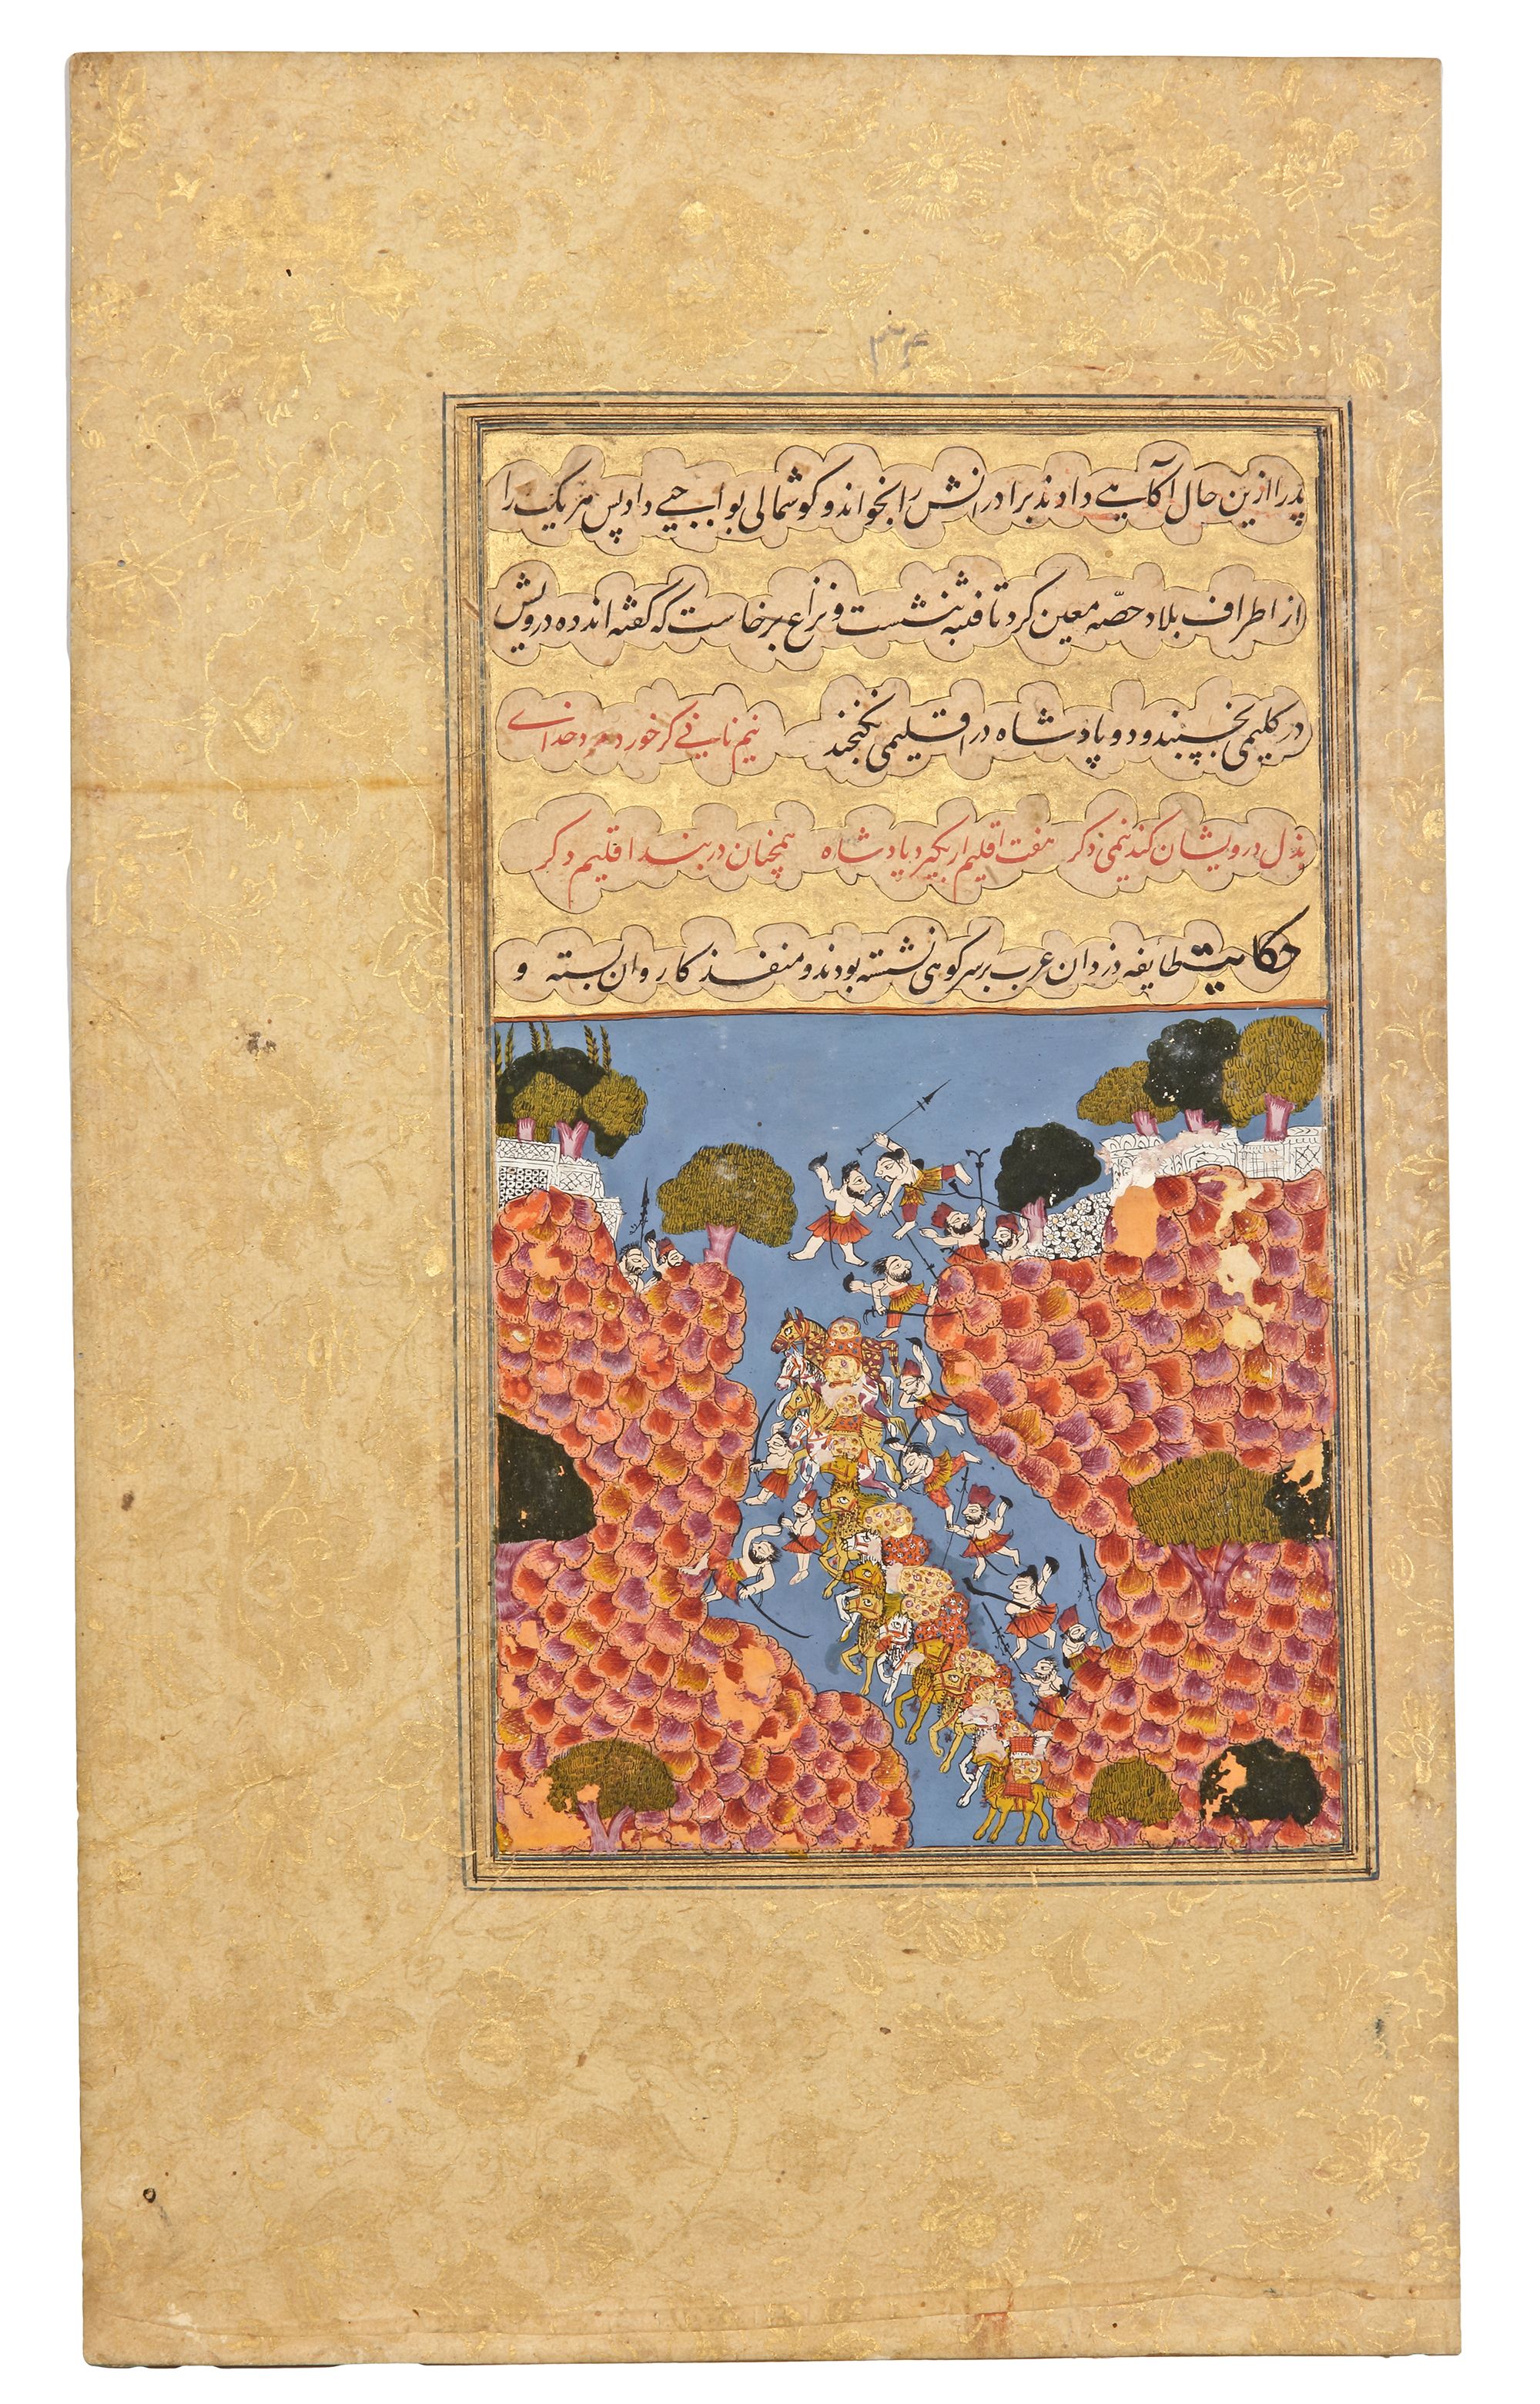 ۳۴
پدر را ازین حال آگاهی دادند برادرانش را بخواند و گوشمالی بواجبی داد پس هر یک را
از اطراف بلاد حصّه معین کرد تا فتنه بنشست و نزاع برخاست که گفته اند ده درویش
در گلیمی بخسپند و دو پادشاه در اقلیمی نگنجند نیم نانی گر خورد مرد خدای
بذل درویشان کند نیمی دگر هفت اقلیم ار بگیرد پادشاه همچنان در بند اقلیم دگر
حکایت طایفه دزدان عرب بر سر کوهی نشسته بودند و منفذ کاروان بسته و